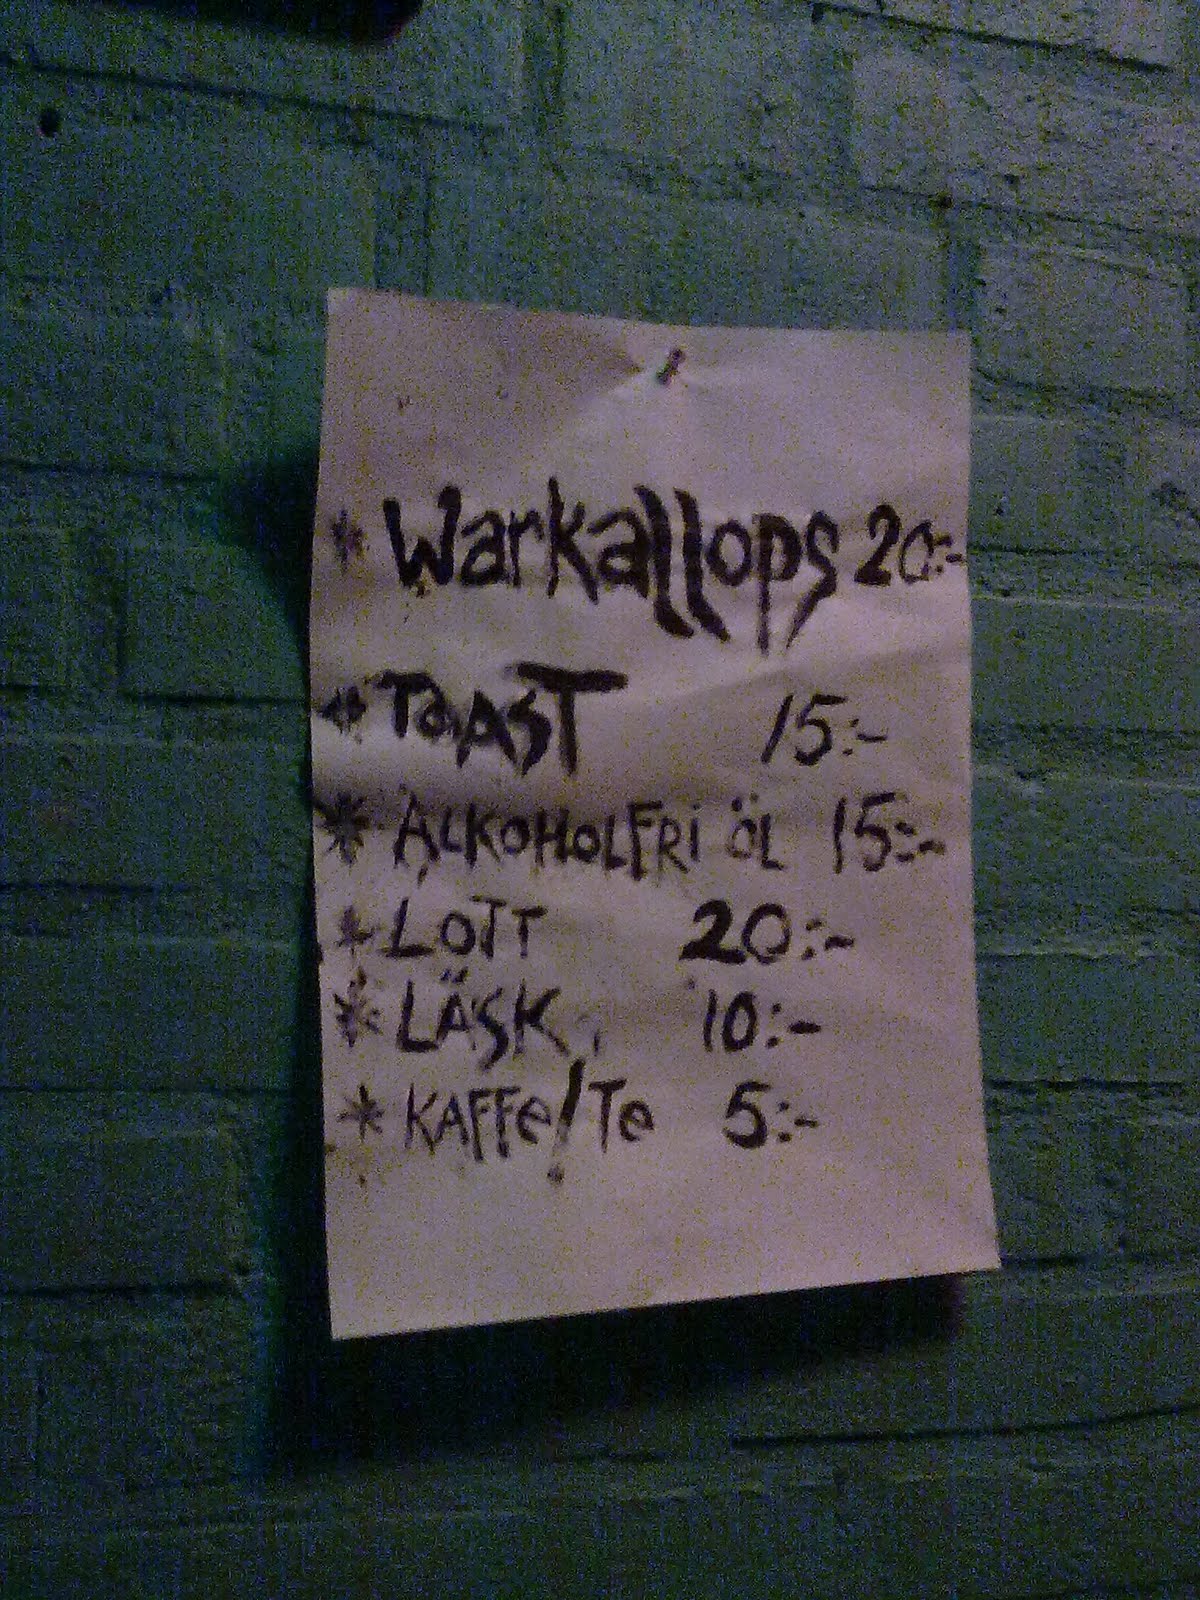 * Warkallops 20:-
* ToAST 15:-
* ALKOHOLFRi öL 15:-
* LOTT 20:-
* LÄSK 10:-
* KAFFe/Te 5:-